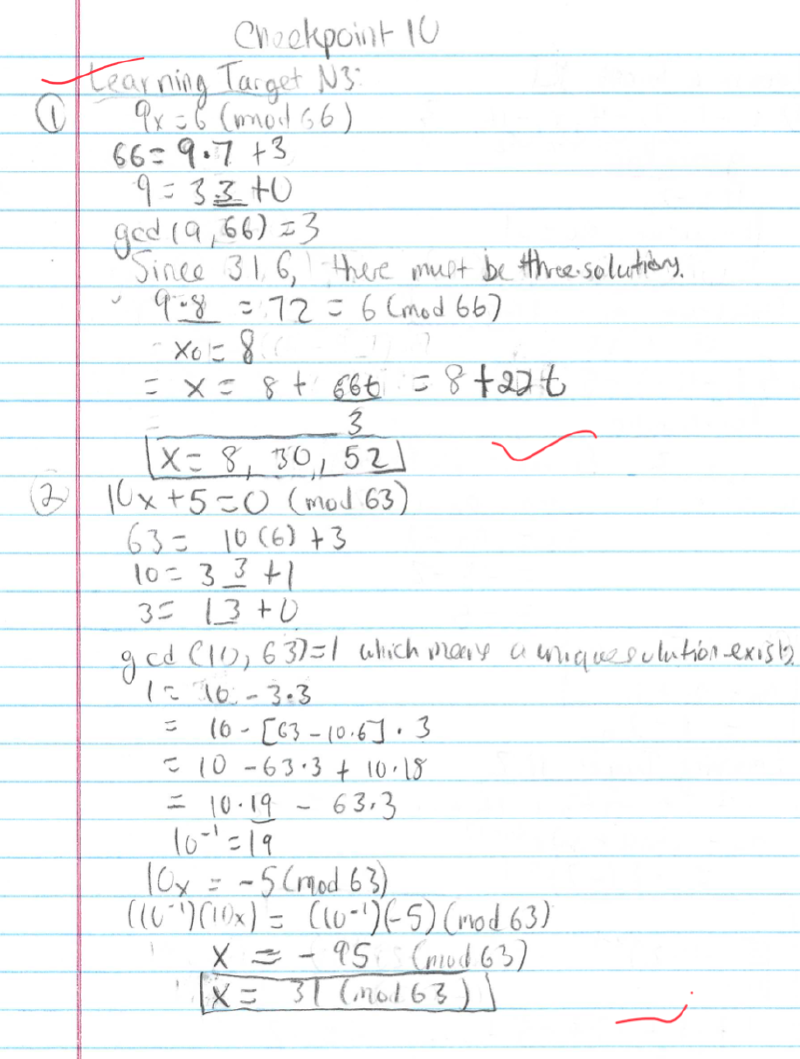 Checkpoint 10
Learning Target N3:
① 9x = 6 (mod 66)
66 = 9·7 + 3
9 = 3 3 + 0
gcd (9, 66) = 3
Since 3 | 6, there must be three solutions.
9·8 = 72 = 6 (mod 66)
x₀ = 8
= x = 8 + 66t/3 = 8 + 22t
x = 8, 30, 52
② 10x + 5 = 0 (mod 63)
63 = 10 (6) + 3
10 = 3 3 + 1
3 = 1 3 + 0
gcd (10, 63) = 1 which means a unique solution exists.
1 = 10 - 3·3
= 10 - [63 - 10·6] · 3
= 10 - 63·3 + 10·18
= 10·19 - 63·3
10⁻¹ = 19
10x = -5 (mod 63)
((10⁻¹)(10x) = (10⁻¹)(-5) (mod 63)
x = - 95 (mod 63)
x = 31 (mod 63)